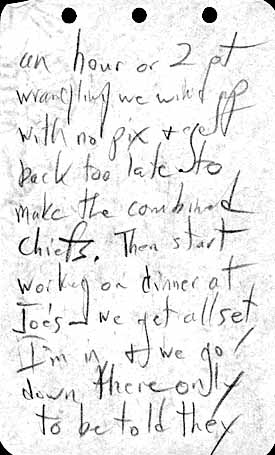 an hour or 2 pt
wrangling we wind up
with no pix & get
back too late to
make the combined
chiefs. Then start
working on dinner at
Joe's - we get all set
I'm in & we go
down there only
to be told they